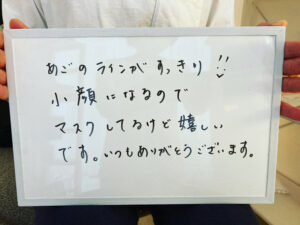 あごのラインがすっきり!!
小顔になるので
マスクしてるけど嬉しい
です。いつもありがとうございます。